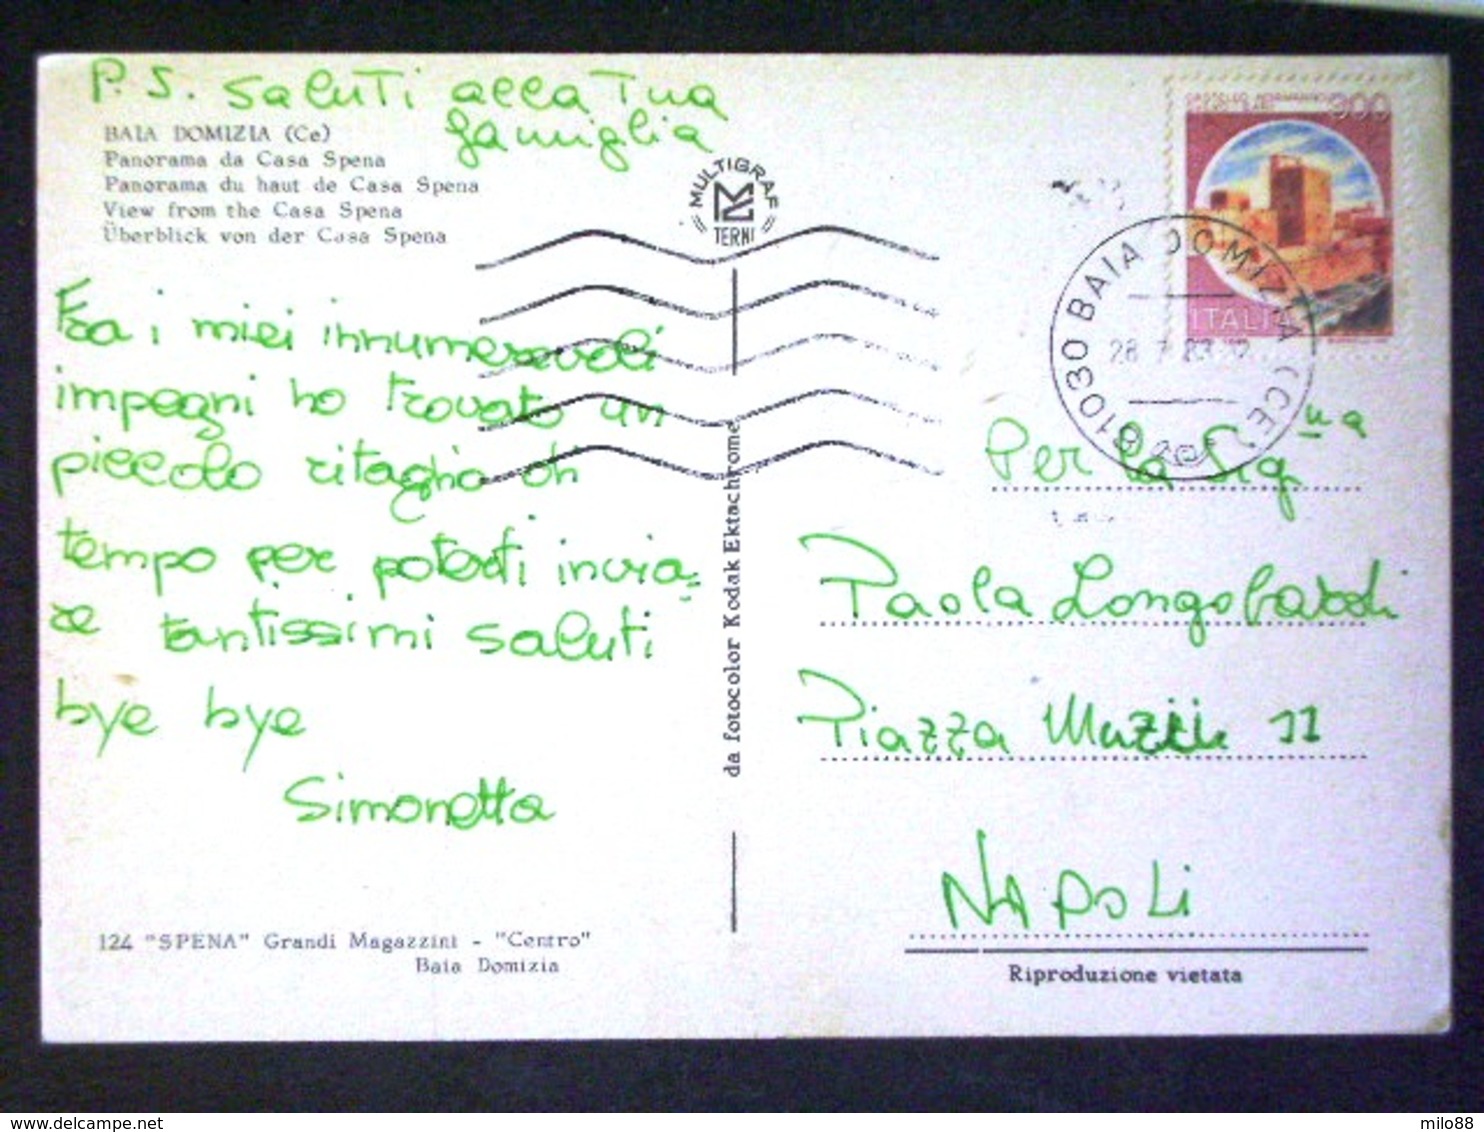 P.S. saluti alla Tua
famiglia
BAIA DOMIZIA (Ce)
Panorama da Casa Spena
Panorama du haut de Casa Spena
View from the Casa Spena
Überblick von der Casa Spena
MULTIGRAF
TERNI
Fra i miei innumerevoli
impegni ho trovato un
piccolo ritaglio di
tempo per poterti invia=
re tantissimi saluti
bye bye
Simonetta
124 "SPENA" Grandi Magazzini - "Centro"
Baia Domizia
da fotocolor Kodak Ektachrome
300
ITALIA
81030 BAIA DOMIZIA (CE)
28 7 83 12
Per la Sig.na
Paola Longobardi
Piazza Muzii 11
NAPOLI
Riproduzione vietata
milo88